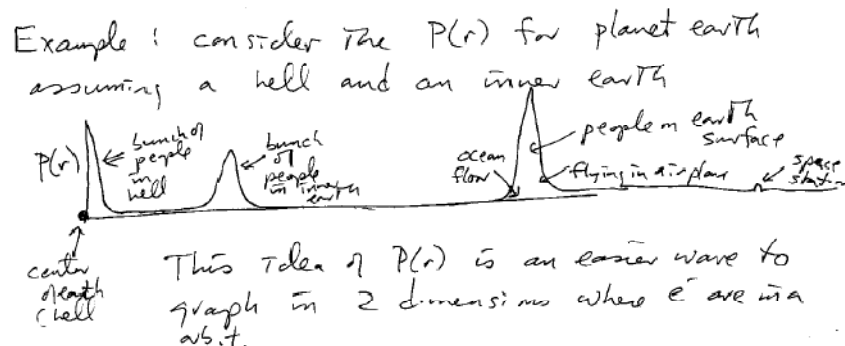 Example : consider the P(r) for planet earth
assuming a hell and an inner earth
P(r)
bunch of
people
in
hell
bunch
of
people
in inner
earth
ocean
flow
people on earth
surface
flying in airplane
space
station
center
of earth
(hell
This idea of P(r) is an easier wave to
graph in 2 dimensions where e⁻ are in a
orbit.